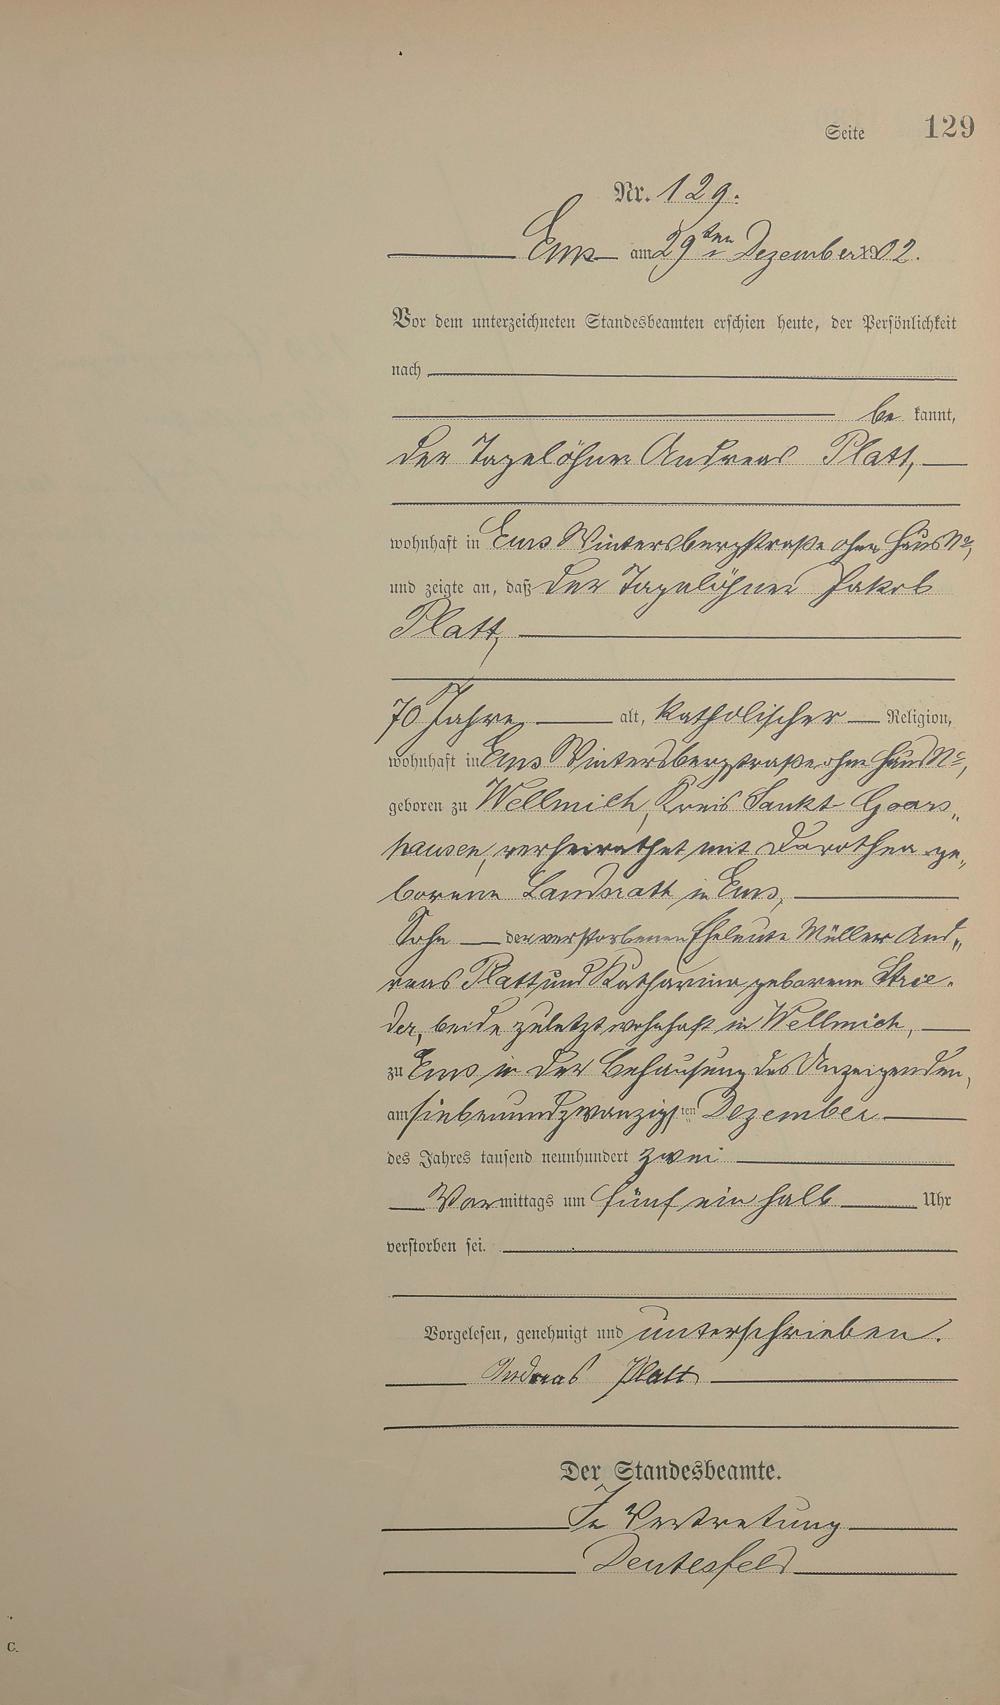 Seite 129
Nr. 129.
Ems am 29ten Dezember 1902.
Vor dem unterzeichneten Standesbeamten erschien heute, der Persönlichkeit
nach
be kannt,
der Tagelöhner Andreas Platt,
wohnhaft in Ems Wintersbergstraße ohne Haus No,
und zeigte an, daß der Tagelöhner Jakob
Platt,
70 Jahre, alt, katholischer Religion,
wohnhaft in Ems Wintersbergstraße ohne Haus No,
geboren zu Wellmich, Kreis Sankt Goars„
hausen, verheirathet mit Dorothea ge„
borene Landsrath in Ems,
Sohn der verstorbenen Eheleute Müller And„
reas Platt und Katharina geborene Strie-
der, beide zuletzt wohnhaft in Wellmich,
zu Ems in der Behausung des Anzeigenden,
am siebenundzwanzigsten Dezember
des Jahres tausend neunhundert zwei
Vormittags um fünf ein halb Uhr
verstorben sei.
Vorgelesen, genehmigt und unterschrieben.
Andreas Platt
Der Standesbeamte.
In Vertretung
C.